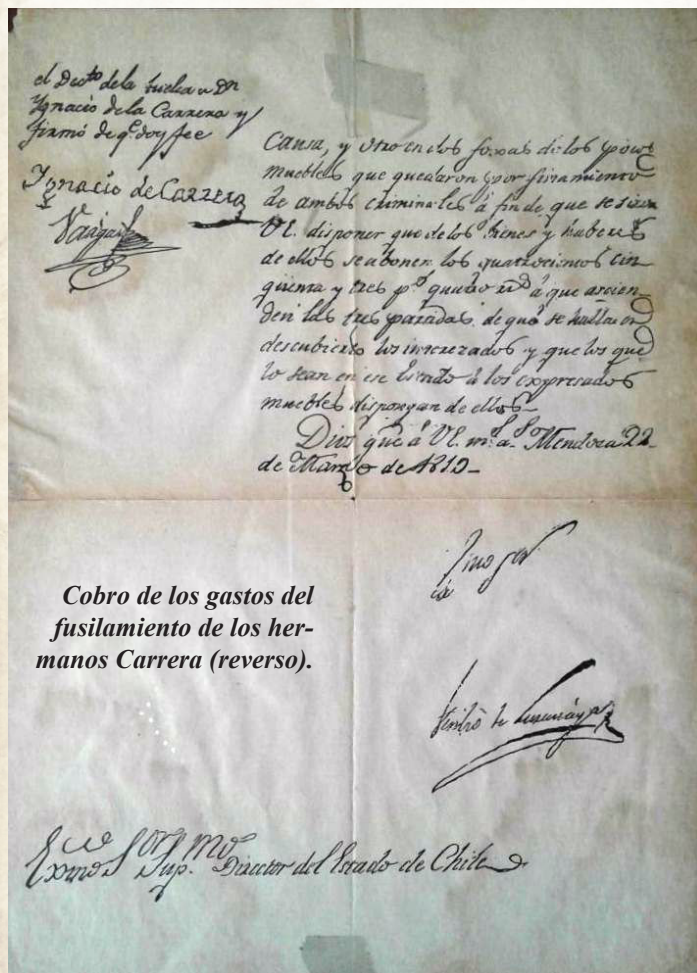 el Decto de la buelta a Dn
Ygnacio de la Carrera y
firmó de q.e doy fee
Ygnacio de Carrera
Vargas
Causa, y otro en dos foxas de los pocos
muebles que quedaron por finamiento
de ambos criminales á fin de que se sirva
VE. disponer que de los bienes y haberes
de ellos se abonen los quatrocientos cin-
quenta y tres p.s quatro r.s á que ascien-
den las tres partidas, de que se hallan en
descubierto los interezados y que los que
lo sean en ese Estado á los expresados
muebles dispongan de ellos_
Dios gue á VE. m.s a.s Mendoza 22
de Marzo de 1819_
Cobro de los gastos del
fusilamiento de los her-
manos Carrera (reverso).
Exmo Sor Sup.mo Director del Estado de Chile